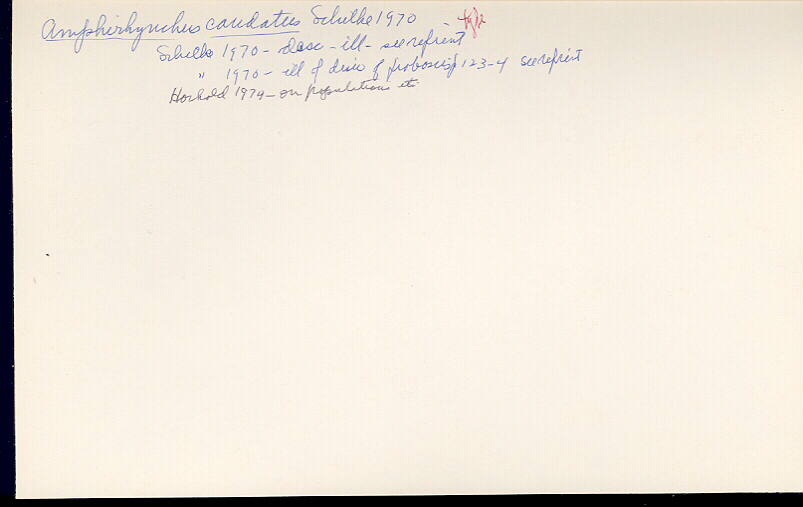 Amphirhynchus caudatus Schulke 1970
Schulke 1970 - desc - ill - see reprint
" 1970 - ill of disc of proboscis p 123-4 see reprint
1974 - on populations etc